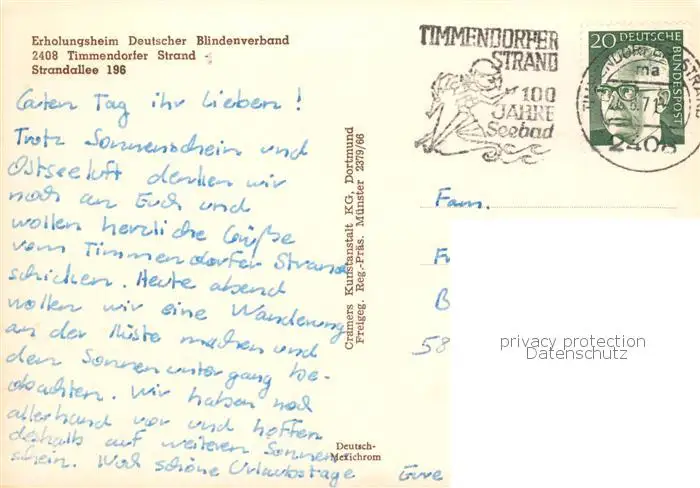 Erholungsheim Deutscher Blindenverband
2408 Timmendorfer Strand
Strandallee 196
Guten Tag ihr Lieben!
Trotz Sonnenschein und
Ostseeluft denken wir
noch an Euch und
wollen herzliche Grüße
vom Timmendorfer Strand
schicken. Heute abend
wollen wir eine Wanderung
an der Küste machen und
den Sonnenuntergang be-
obachten. Wir haben noch
allerhand vor und hoffen
deshalb auf weiteren Sonnen-
schein. Noch schöne Urlaubstage
Eure
Cramers Kunstanstalt KG, Dortmund
Freigeg. Reg.-Präs. Münster 2379/66
Deutsch-
Mexichrom
TIMMENDORFER
STRAND
100
JAHRE
Seebad
20 DEUTSCHE
BUNDESPOST
TIMMENDORFER STRAND
ma
2408
Fam.
F
B
58
privacy protection
Datenschutz